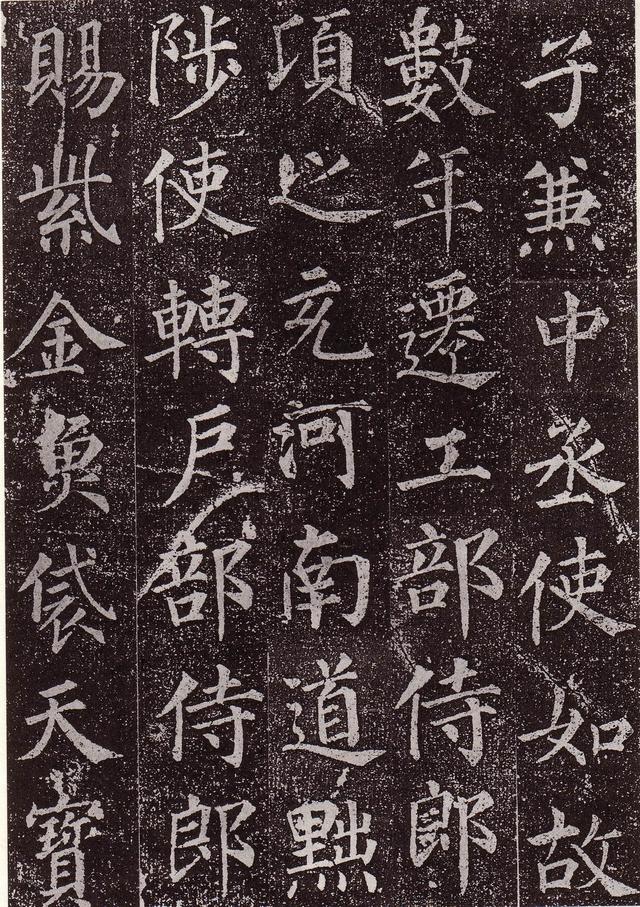 子兼中丞使如故
數年遷工部侍郎
頃之充河南道黜
陟使轉戶部侍郎
賜紫金魚袋天寶